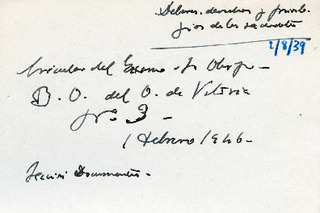 Deberes, derechos y privile-
gios de los sacerdotes
2/8/39
Circular del Excmo. Sr Obispo -
B. O. del O. de Vitoria
Nº 3 -
1 Febrero 1946 -
Sección Documentos -